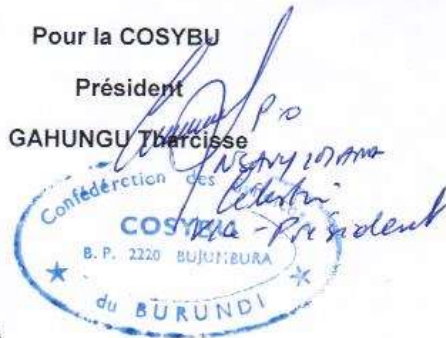 Pour la COSYBU
Président
GAHUNGU Tharcisse
P.O
Célestin
Vice-Président
Confédérction des
COSYBU
B. P. 2220 BUJUMBURA
du BURUNDI